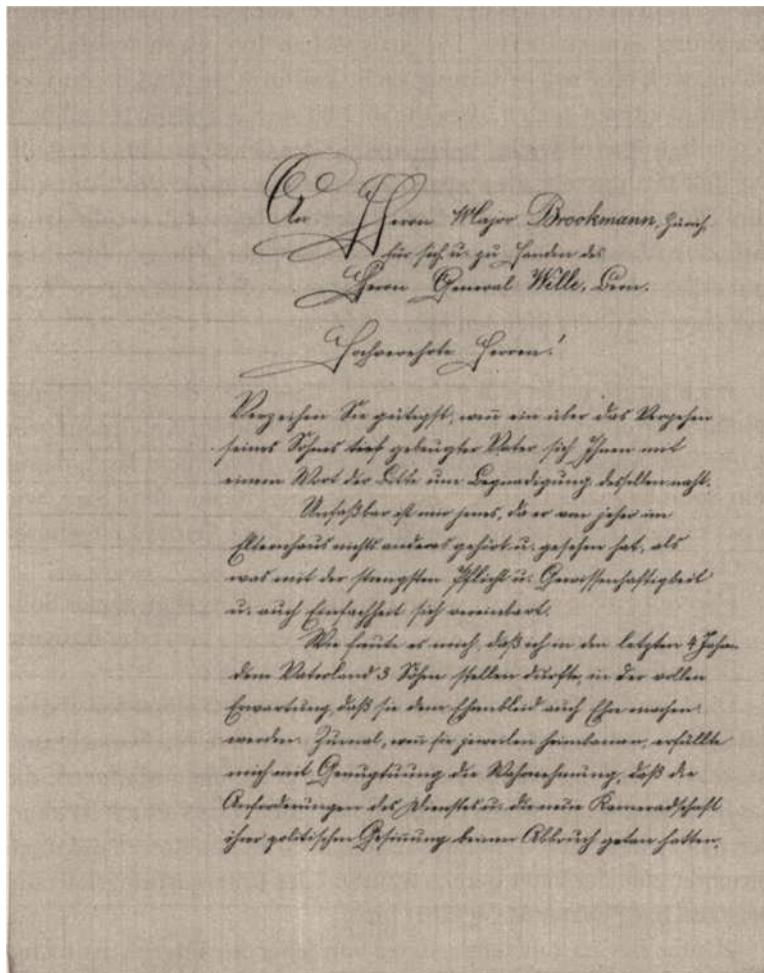 An Herrn Major Brookmann, Zürich,
für sich u. zu Handen des
Herrn General Wille, Bern.
Hochverehrte Herren!
Verzeihen Sie gütigst, wenn ein über das Vergehen
seines Sohnes tief gebeugter Vater sich Ihnen mit
einem Wort der Bitte um Begnadigung desselben naht.
Unfaßbar ist mir jenes, da er von jeher im
Elternhaus nichts anderes gehört u. gesehen hat, als
was mit der strengsten Pflicht u. Gewissenhaftigkeit
u. auch Einfachheit sich vereinbart.
Wie freute es mich, daß ich in den letzten 4 Jahren
dem Vaterland 3 Söhne stellen durfte, in der vollen
Erwartung, daß sie dem Ehrenkleid auch Ehre machen
werden. Zumal, wenn sie jeweilen heimkamen, erfüllte
mich mit Genugtuung die Wahrnehmung, daß die
Anforderungen des Dienstes u. die neue Kameradschaft
ihrer politischen Gesinnung keinen Abbruch getan hatten.